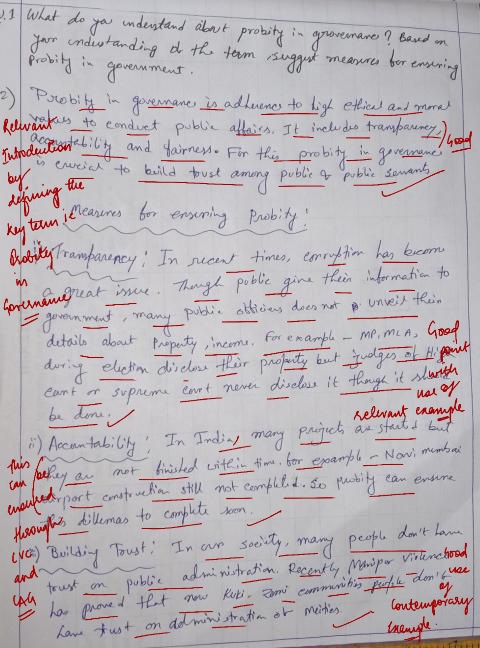 Q.1 What do you understand about probity in governance? Based on
your understanding of the term, suggest measures for ensuring
probity in government.
Probity in governance is adherence to high ethical and moral
values to conduct public affairs. It includes transparency,
accountability and fairness. For this probity in governance
is crucial to build trust among public & public servants
Good
Relevant
Introduction
by
defining the
key term i.e
Probity
in
Governance
Measures for ensuring Probity:
i) Transparency: In recent times, corruption has become
a great issue. Though public give their information to
government, many public officers does not unveil their
details about Property, income. For example - MP, MLA,
during election disclose their property but judges of High
court or supreme court never disclose it though it should
be done.
Good
point
with
use of
relevant example
ii) Accountability: In India, many projects are started but
they are not finished within time. for example - Navi mumbai
airport construction still not completed. So probity can ensure
this dillemas to complete soon.
this
can be
ensured
through
CVC
and
CAG
Building Trust: In our society, many people don't have
trust on public administration. Recently Manipur Violence
has proved that now Kuki-Zomi communities people don't
have trust on administration of Meities
Good
use
of
Contemporary
Example.